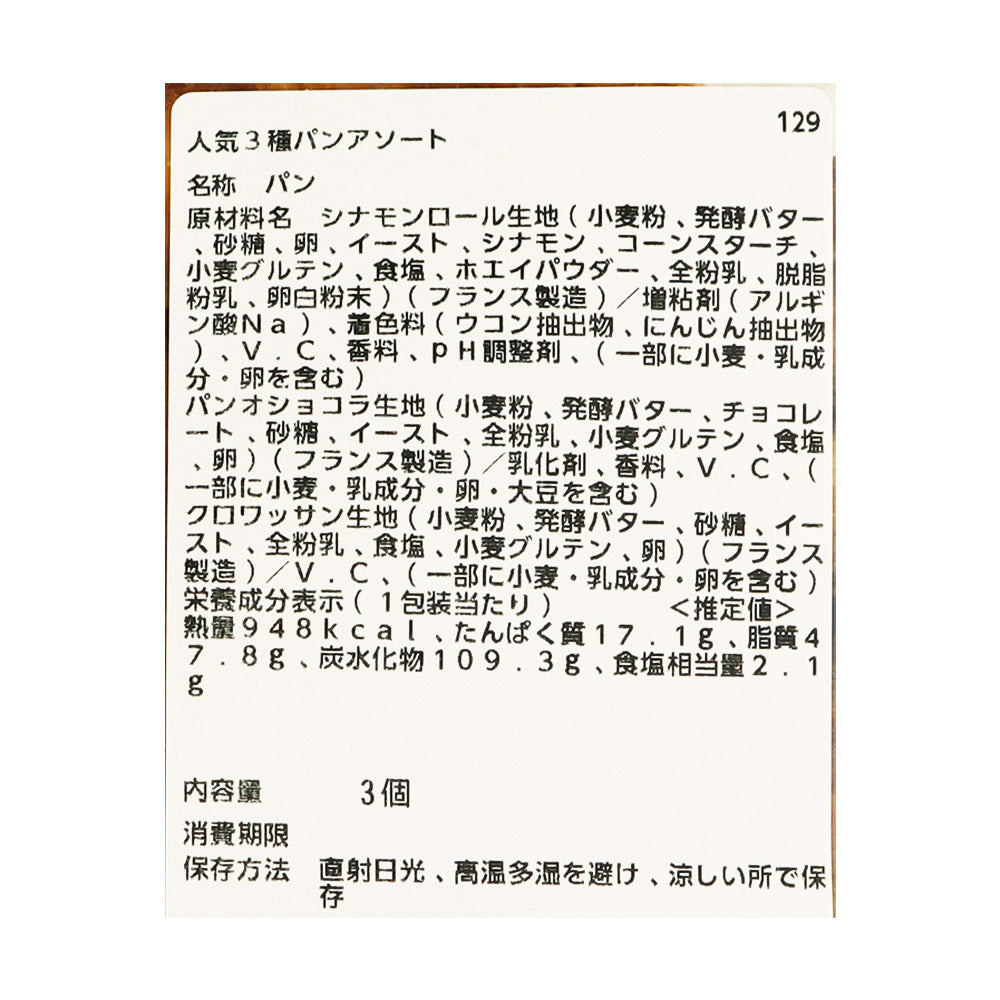 129
人気3種パンアソート
名称　パン
原材料名　シナモンロール生地（小麦粉、発酵バター
、砂糖、卵、イースト、シナモン、コーンスターチ、
小麦グルテン、食塩、ホエイパウダー、全粉乳、脱脂
粉乳、卵白粉末）（フランス製造）／増粘剤（アルギ
ン酸Ｎａ）、着色料（ウコン抽出物、にんじん抽出物
）、Ｖ．Ｃ、香料、ｐＨ調整剤、（一部に小麦・乳成
分・卵を含む）
パンオショコラ生地（小麦粉、発酵バター、チョコレ
ート、砂糖、イースト、全粉乳、小麦グルテン、食塩
、卵）（フランス製造）／乳化剤、香料、Ｖ．Ｃ、（
一部に小麦・乳成分・卵・大豆を含む）
クロワッサン生地（小麦粉、発酵バター、砂糖、イー
スト、全粉乳、食塩、小麦グルテン、卵）（フランス
製造）／Ｖ．Ｃ、（一部に小麦・乳成分・卵を含む）
栄養成分表示（１包装当たり）　　　　＜推定値＞
熱量９４８ｋｃａｌ、たんぱく質１７．１ｇ、脂質４
７．８ｇ、炭水化物１０９．３ｇ、食塩相当量２．１
ｇ
内容量　　3個
消費期限
保存方法　直射日光、高温多湿を避け、涼しい所で保
存